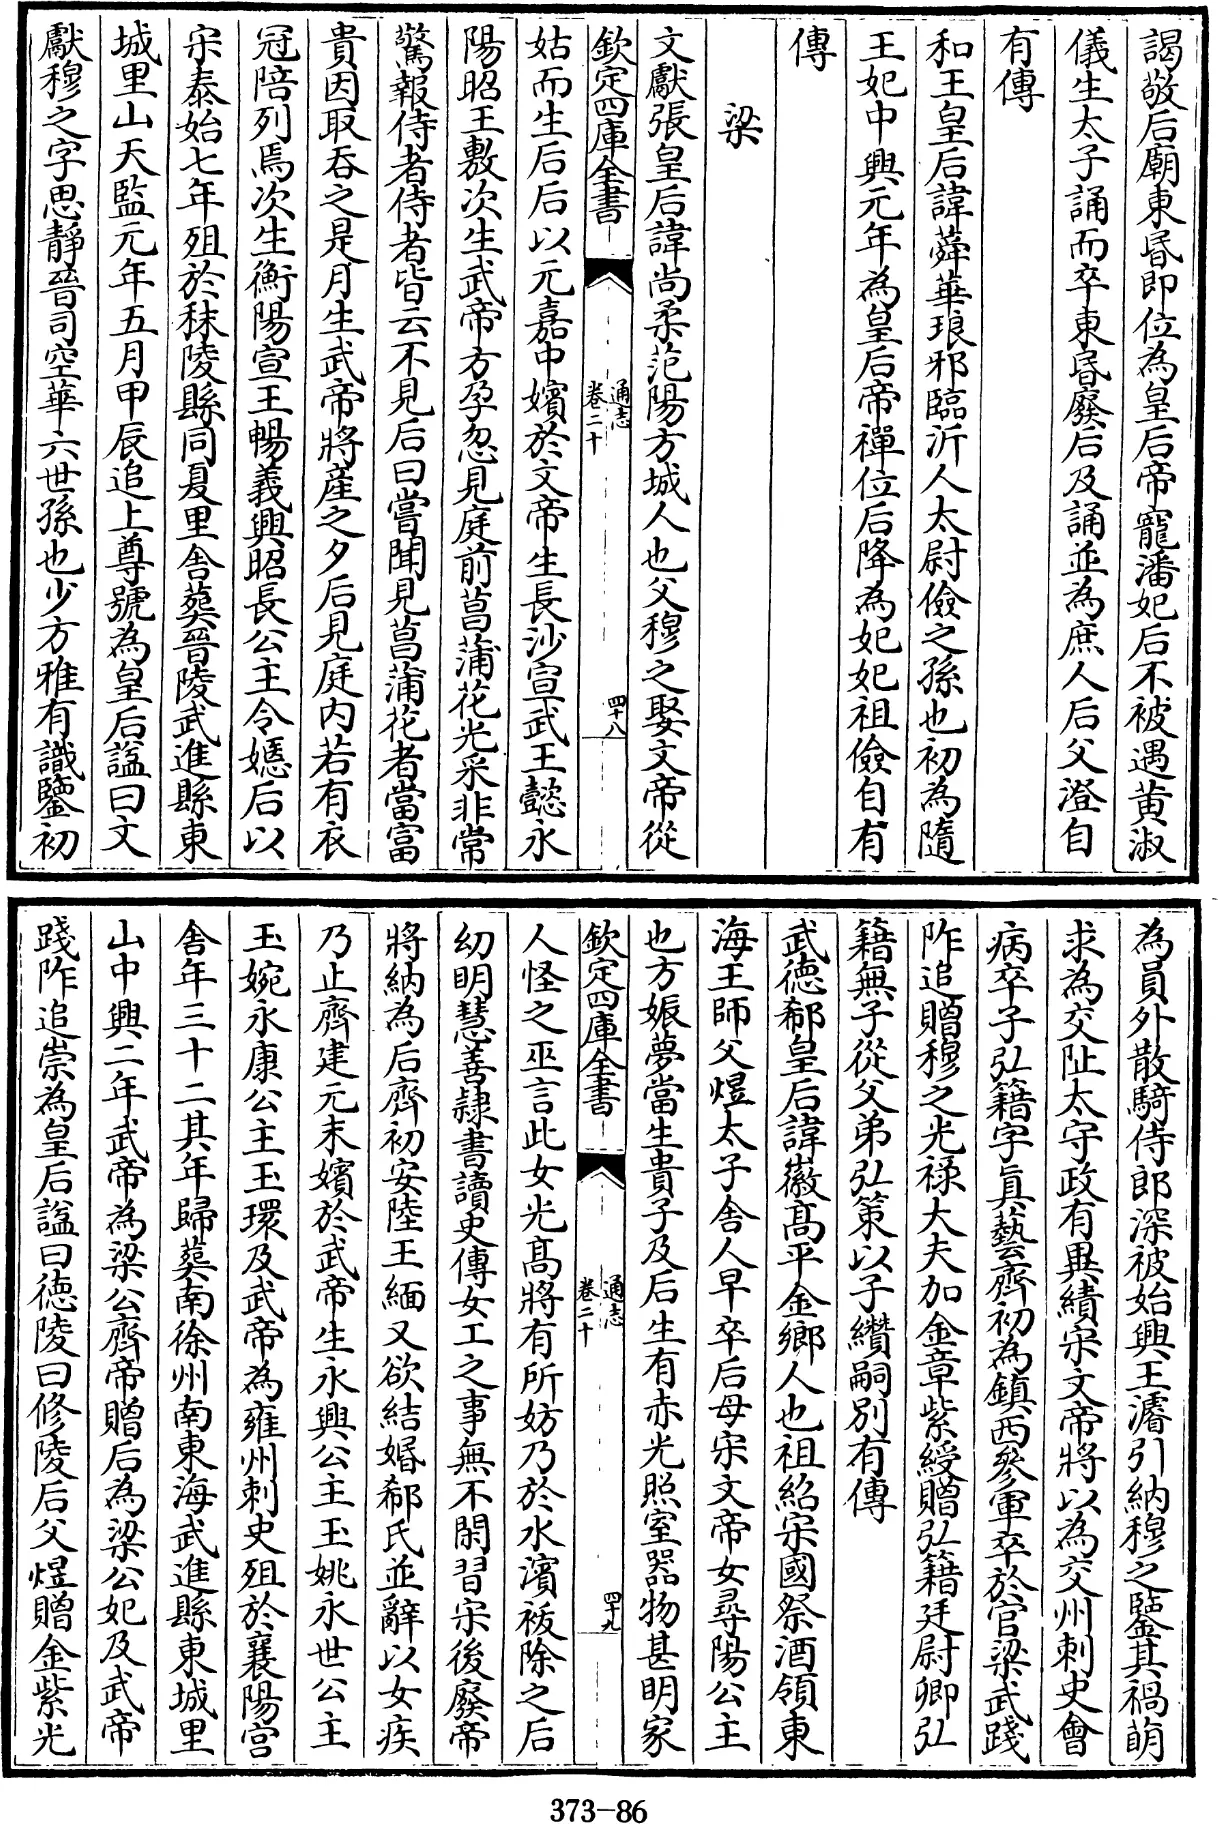 謁敬后廟東昏即位為皇后帝寵潘妃后不被遇黄淑
儀生太子誦而卒東昏廢后及誦並為庶人后父澄自
有傳
和王皇后諱蕣華琅邪臨沂人太尉儉之孫也初為隨
王妃中興元年為皇后帝禪位后降為妃妃祖儉自有
傳
梁
文獻張皇后諱尚柔范陽方城人也父穆之娶文帝從
欽定四庫全書
通志
卷二十
四十八
姑而生后后以元嘉中嬪於文帝生長沙宣武王懿永
陽昭王敷次生武帝方孕忽見庭前菖蒲花光采非常
驚報侍者侍者皆云不見后曰嘗聞見菖蒲花者當富
貴因取吞之是月生武帝將産之夕后見庭内若有衣
冠陪列焉次生衡陽宣王暢義興昭長公主令嫕后以
宋泰始七年殂於秣陵縣同夏里舎葬晉陵武進縣東
城里山天監元年五月甲辰追上尊號為皇后諡曰文
獻穆之字思靜晉司空華六世孫也少方雅有識鑒初
為員外散騎侍郎深被始興王濬引納穆之鑒其禍萌
求為交阯太守政有異績宋文帝將以為交州刺史會
病卒子弘籍字真藝齊初為鎮西參軍卒於官梁武踐
阼追贈穆之光祿大夫加金章紫綬贈弘籍廷尉卿弘
籍無子從父弟弘策以子纘嗣別有傳
武徳郗皇后諱徽髙平金鄉人也祖紹宋國祭酒領東
海王師父燁太子舎人早卒后母宋文帝女尋陽公主
也方娠夢當生貴子及后生有赤光照室器物甚明家
欽定四庫全書
通志
卷二十
四十九
人怪之巫言此女光髙將有所妨乃於水濱祓除之后
幼明慧善隷書讀史傳女工之事無不閑習宋後廢帝
將納為后齊初安陸王緬又欲結婚郗氏並辭以女疾
乃止齊建元末嬪於武帝生永興公主玉姚永世公主
玉婉永康公主玉環及武帝為雍州刺史殂於襄陽官
舎年三十二其年歸葬南徐州南東海武進縣東城里
山中興二年武帝為梁公齊帝贈后為梁公妃及武帝
踐阼追崇為皇后諡曰徳陵曰修陵后父燁贈金紫光
373-86